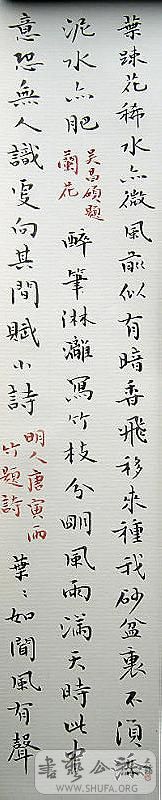 葉疎花稀水亦微風前似有暗香飛移來種我砂盆裏不須
泥水亦肥吳昌碩題蘭花醉筆淋灕寫竹枝分明風雨滿天時此中
意恐無人識更向其間賦小詩明人唐寅雨竹題詩葉〻如聞風有聲
書藝公社
WWW.SHUFA.ORG